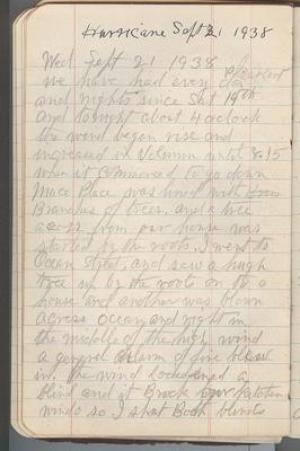 Hurricane Sept 21 1938
Wed Sept 21 1938
we have had every pleasant day
and nights since Sat
and tonight about 4 oclock
the wind began rise and
increased in Volumn until 8.15
when it commenced to go down
Place was lined with
Branches of trees. and a tree
across from our house was
started by the roots. I went to
Ocean Street, and saw a hugh
tree up by the roots on to a
house and another was blown
across ocean and right in
the middle of the high wind
a general alarm of fire blew
in. The wind loosened a
blind and it Broke our kitchen
windo so I shut Both blinds